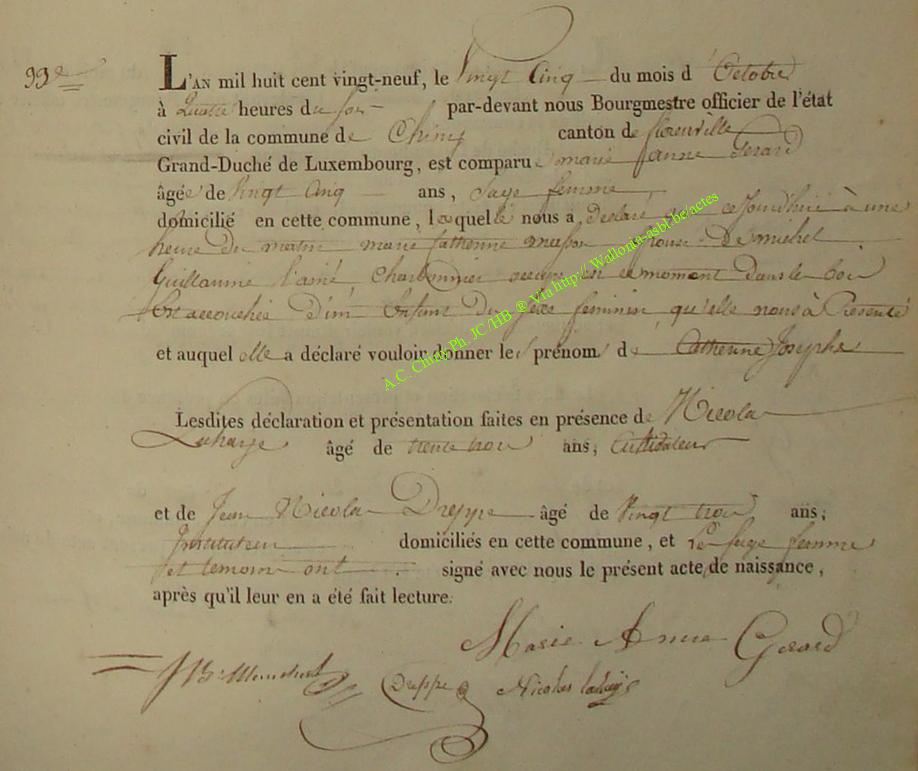 99e
L'AN mil huit cent vingt-neuf, le Vingt Cinq du mois d'Octobre
à Quatre heures du soir par-devant nous Bourgmestre officier de l'état
civil de la commune de Chiny canton de florenville
Grand-Duché de Luxembourg, est comparue marie Anne Gerard
âgée de Vingt Cinq ans, Sage femme
domicilié en cette commune, laquelle nous a déclaré que cejourdhui à une
heure du matin marie Catherine musson Epouse De michel
Guillaume l'ainé, Charbonnier en ce moment dans le
Est accouchée D'un Enfant Du sexe feminin qu'elle nous à Présenté
et auquel elle a déclaré vouloir donner les prénoms de Catherine Josephe
Lesdites déclaration et présentation faites en présence de Nicola
Laharge âgé de trente trois ans, Cultivateur
et de Jean Nicola Dreppe âgé de Vingt trois ans,
Instituteur domiciliés en cette commune, et La sage femme
et temoins ont signé avec nous le présent acte de naissance,
après qu'il leur en a été fait lecture.
Marie Anne Gerard
Dreppe Nicolas
A.C. Chiny Ph. JC/HB ® Via http:// Wallonia-asbl.be/actes